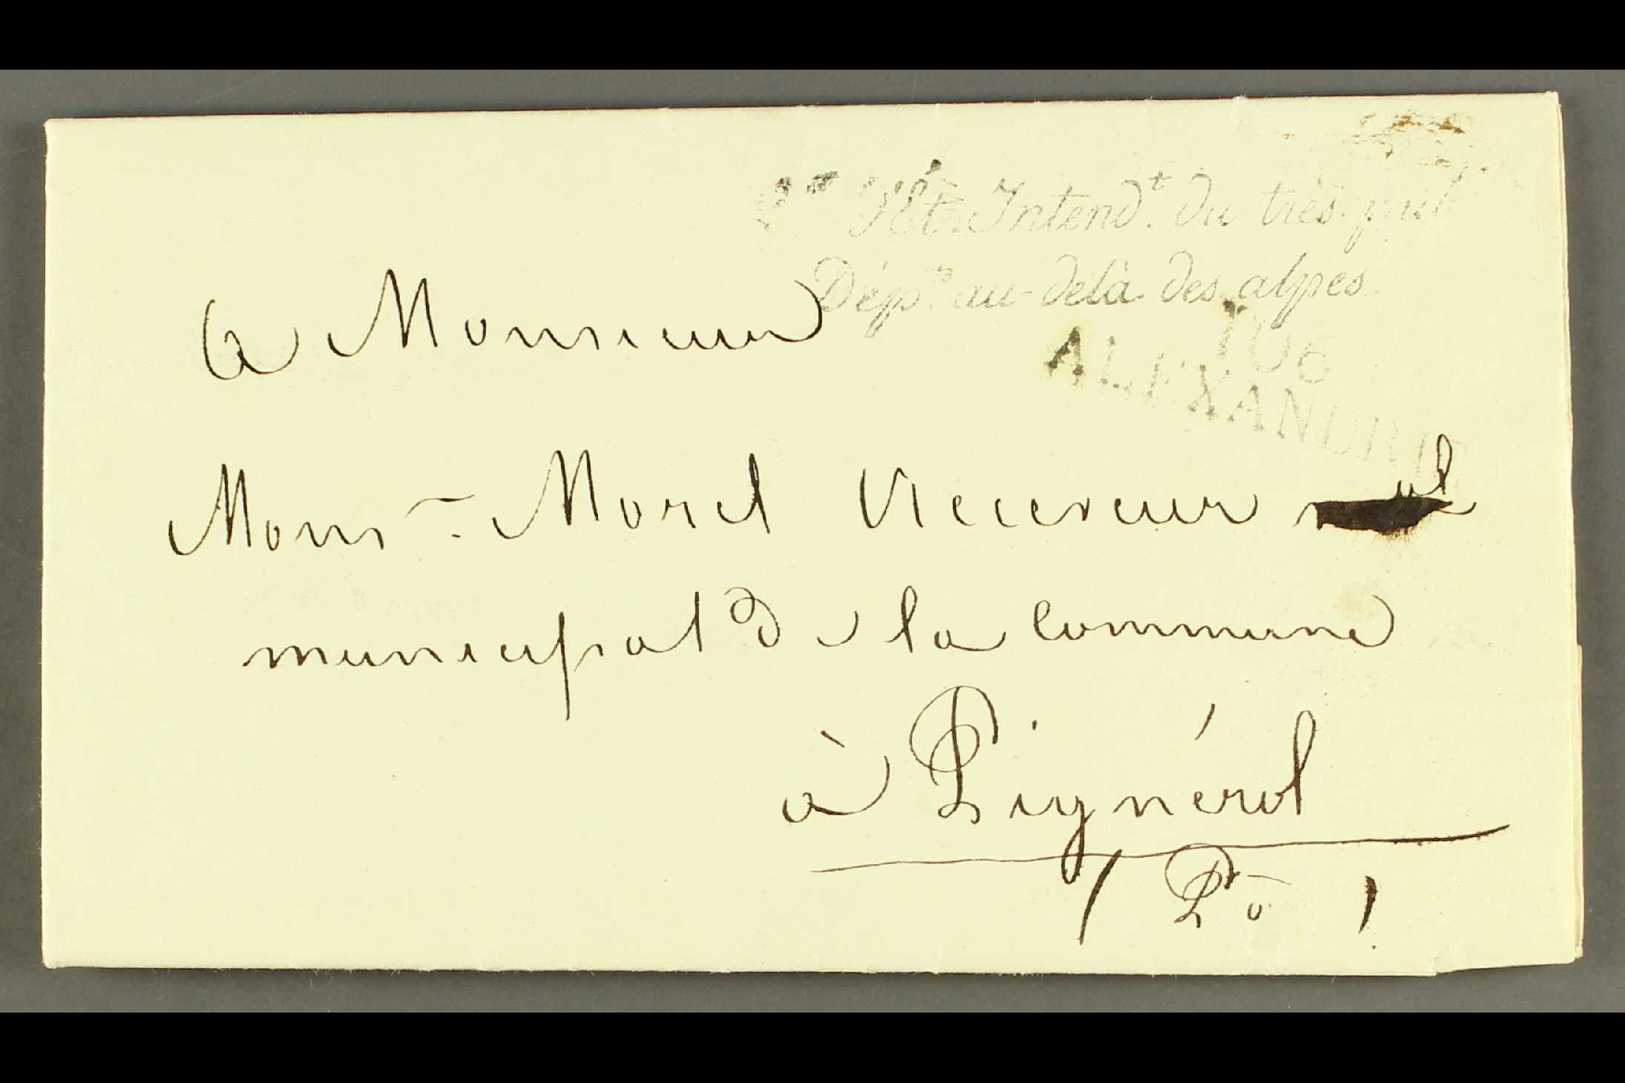 Pét. Intendt. du trés. pub
Dépts. au-delà des alpes.
106
ALEXANDRIE
a Monsieur
Monsr. Morel Receveur
municipal de la Commune
à Pignérol
/ Pô /